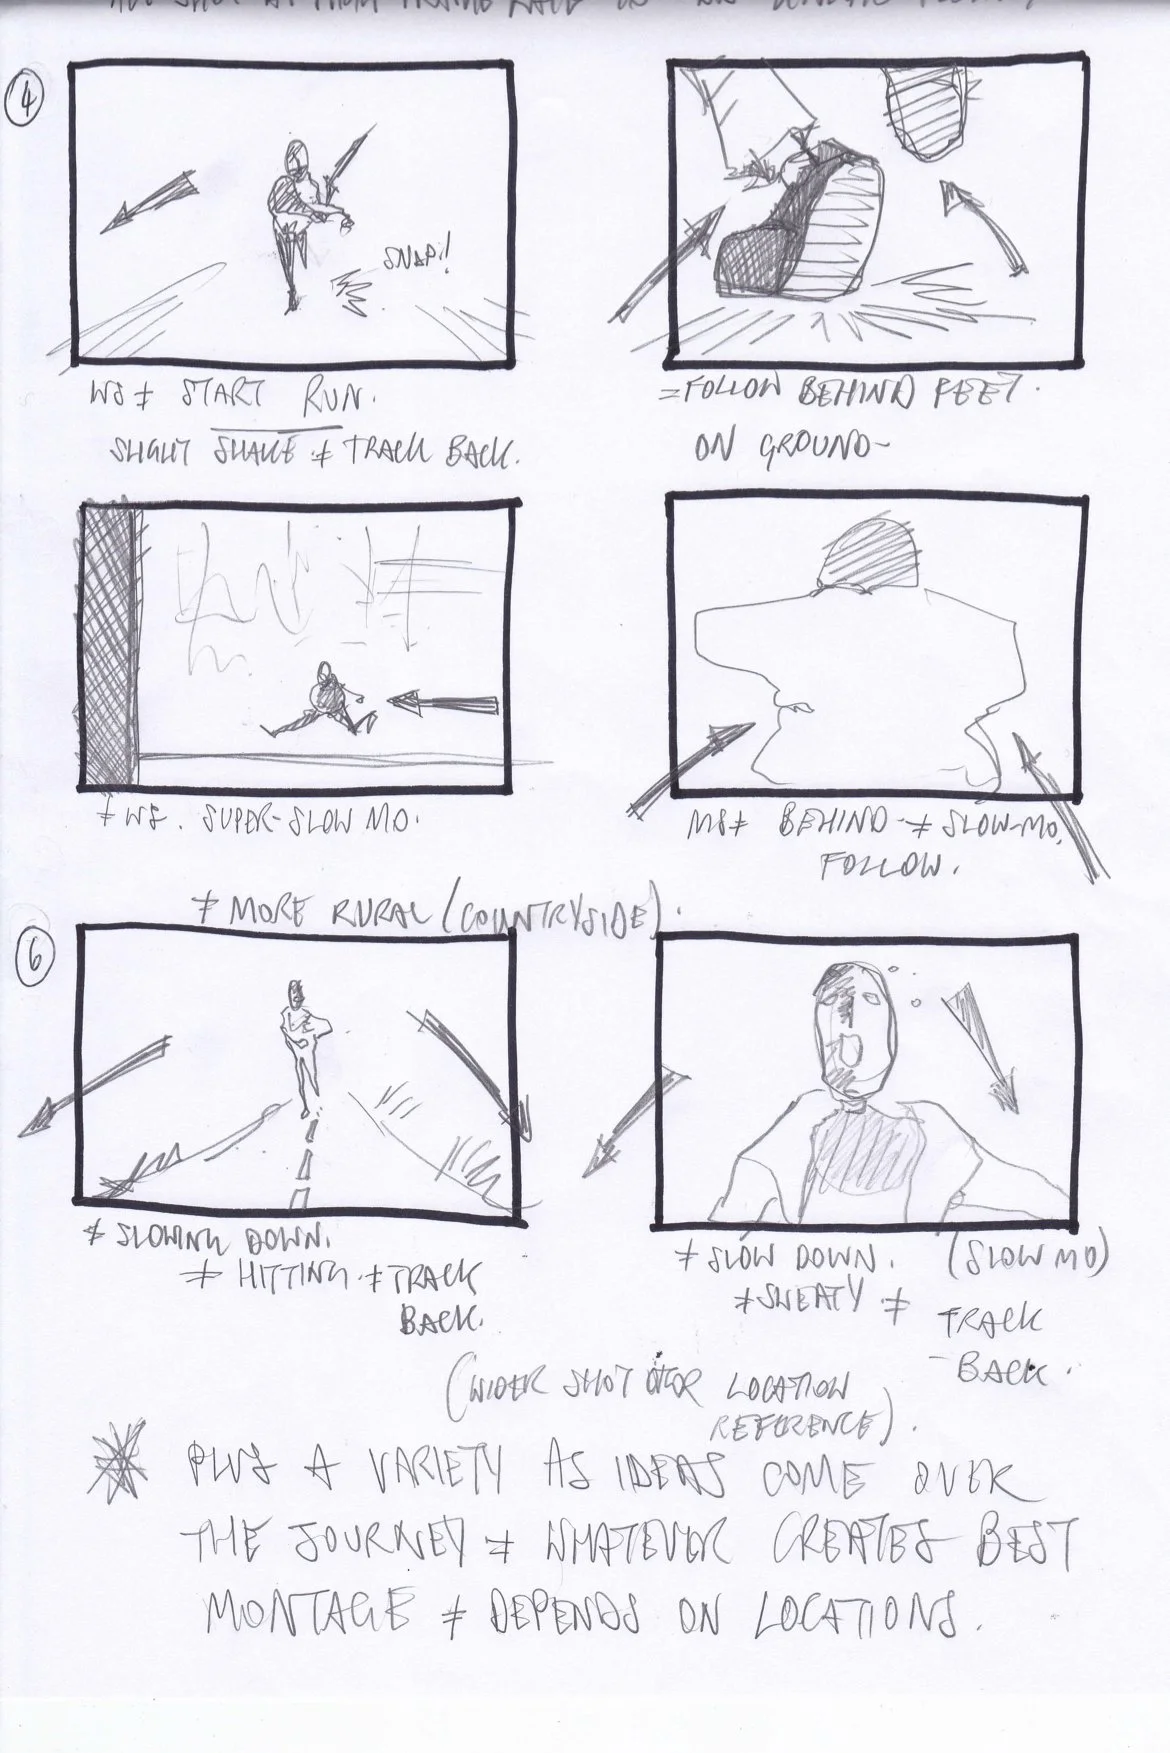 4
SNAP!!
WS ≠ START RUN.
SLIGHT SHAKE ≠ TRACK BACK.
=FOLLOW BEHIND FEET.
ON GROUND-
≠ WS. SUPER-SLOW MO.
MS ≠ BEHIND ≠ SLOW-MO,
FOLLOW.
≠ MORE RURAL (COUNTRYSIDE).
6
≠ SLOWING DOWN.
≠ HITTING ≠ TRACK
BACK.
≠ SLOW DOWN. (SLOW MO)
≠ SWEATY ≠ TRACK
- BACK.
(WIDER SHOT FOR LOCATION
REFERENCE).
PLUS A VARIETY AS IDEAS COME OVER
THE JOURNEY ≠ WHATEVER CREATES BEST
MONTAGE ≠ DEPENDS ON LOCATIONS.